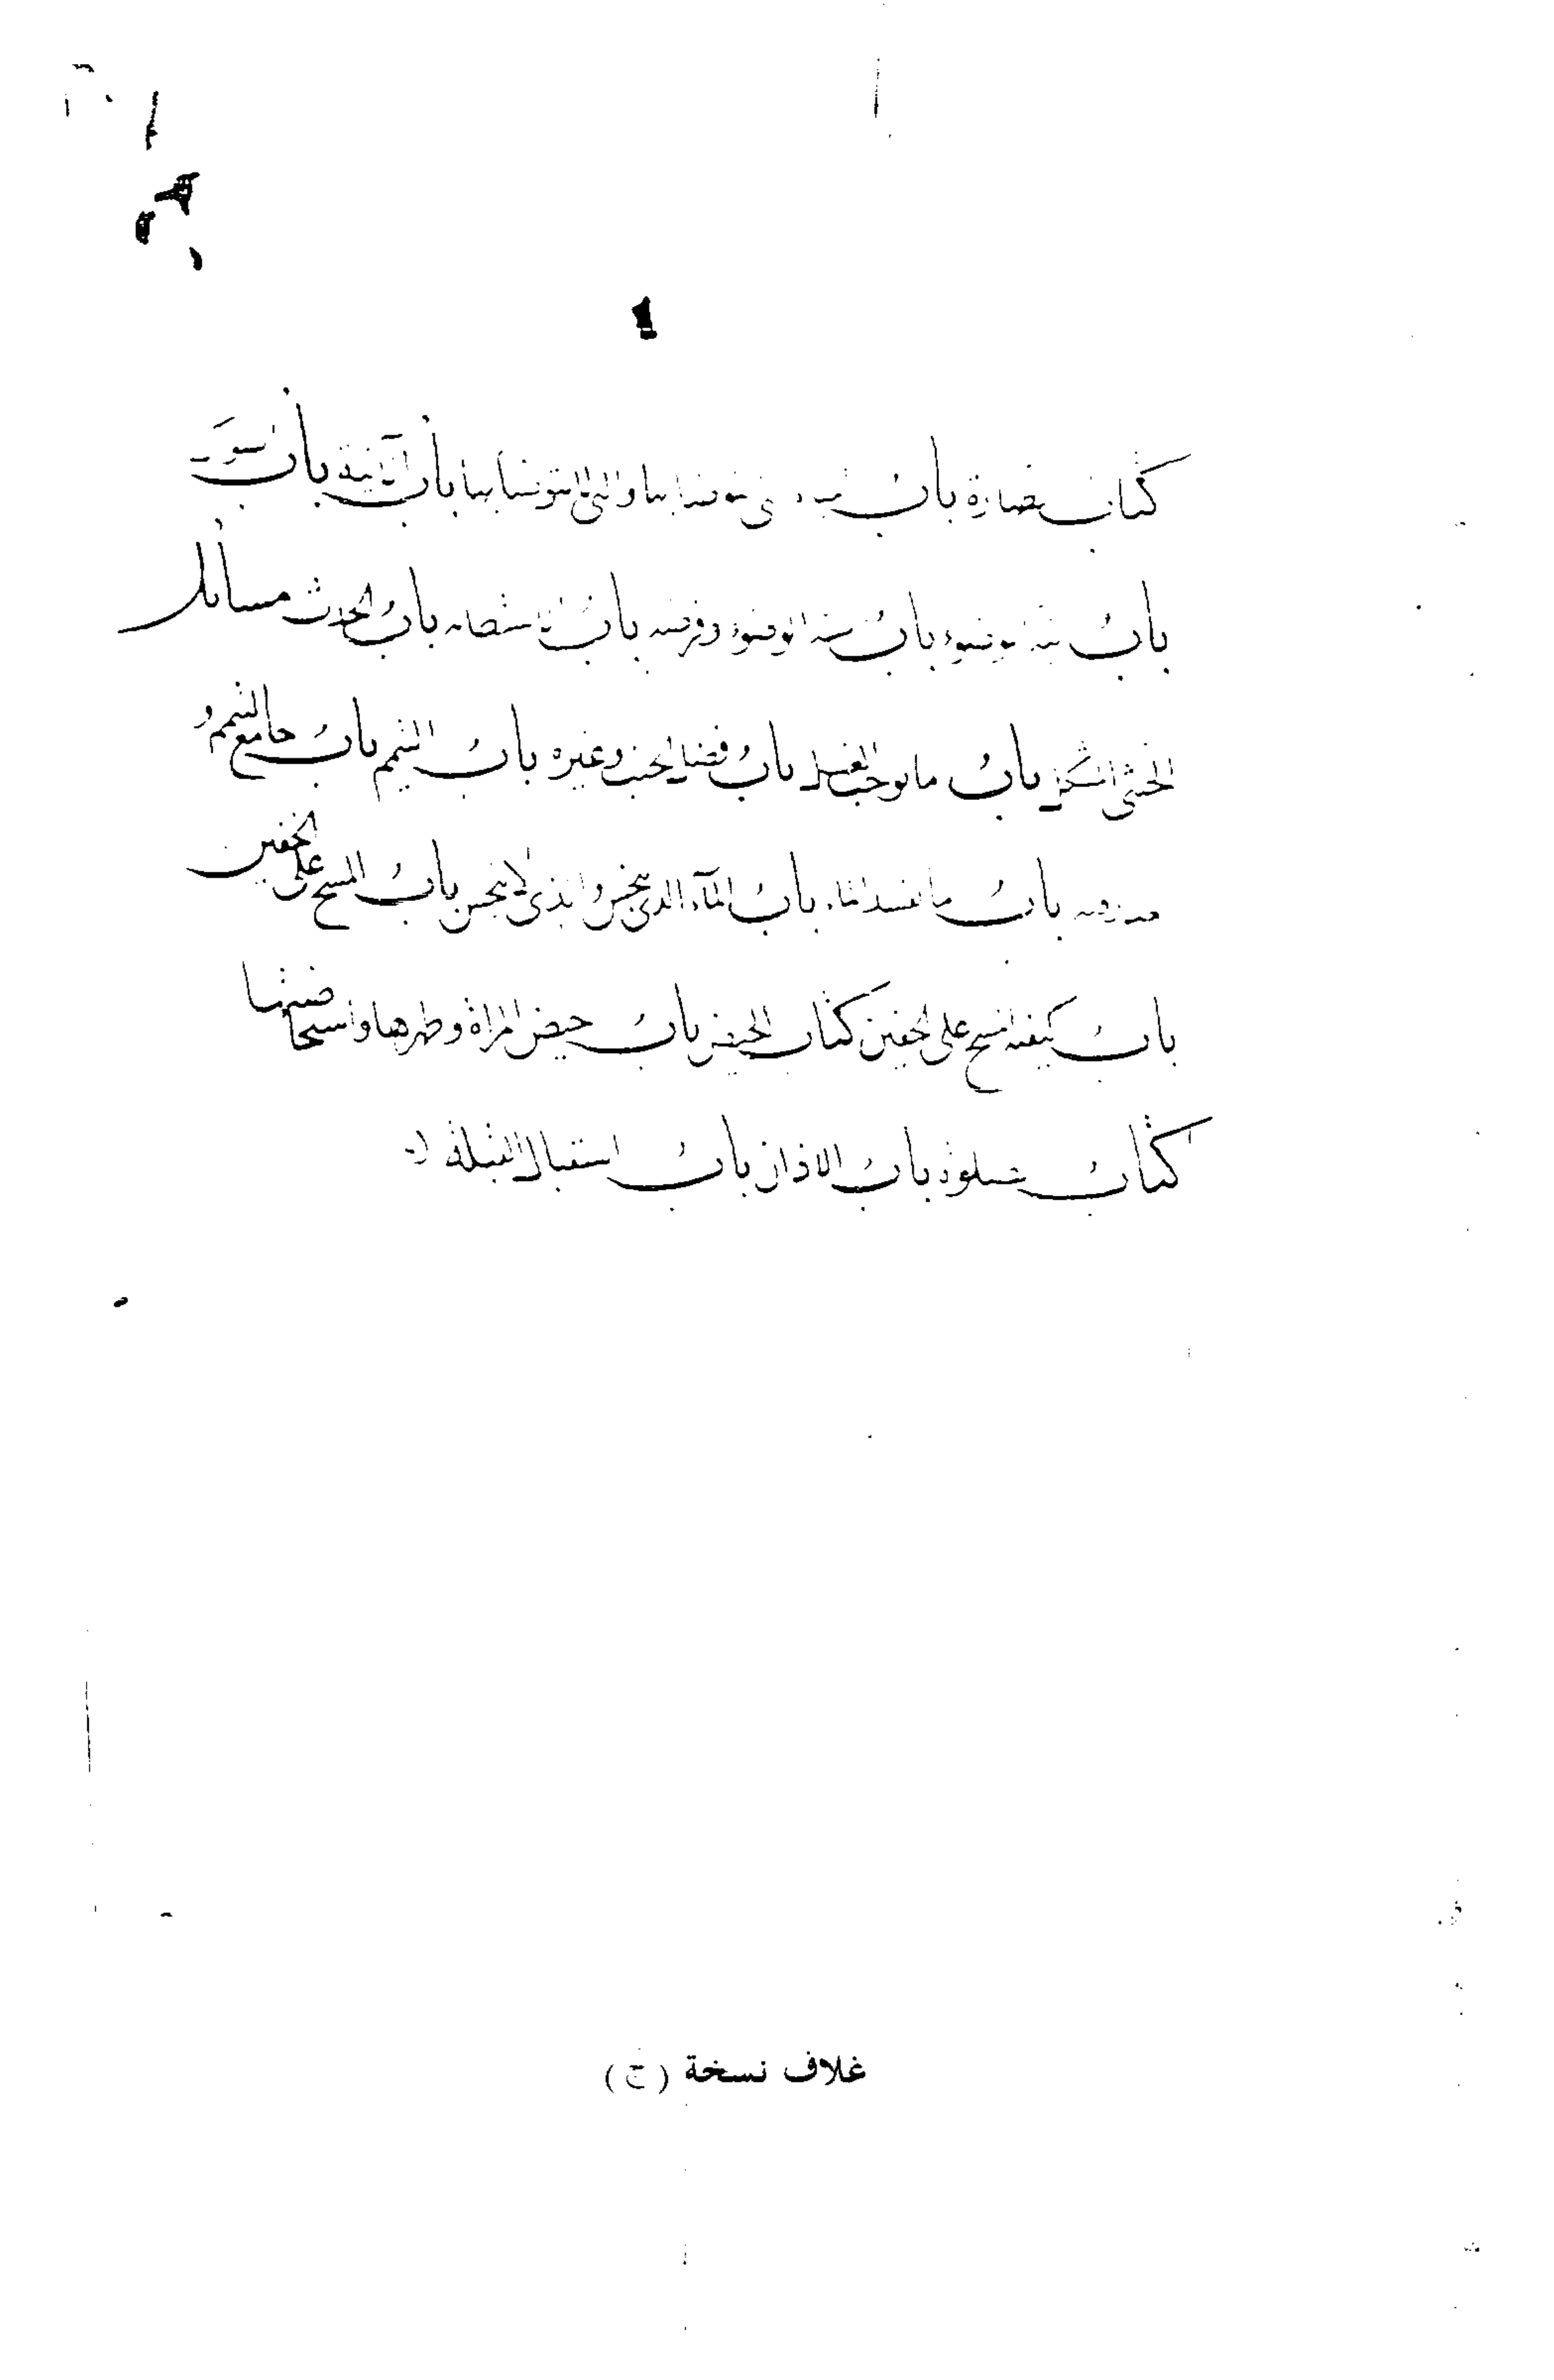 كتاب الطهارة باب المياه التي يتوضأ بها والتي لا يتوضأ بها باب الآنية باب السواك
باب نية الوضوء باب سنة الوضوء وفرضه باب الاستطابه باب الحدث مسائل
الخنثى المشكل باب ما يوجب الغسل باب فضل الجنب وغيره باب التيمم باب جامع التيمم و
باب ما يفسد الماء باب المآء الذي ينجس والذي لا ينجس باب المسح على الخفين
باب كيفية المسح على الخفين كتاب الحيض باب حيض المرأة وطهرها واستحاضتها
كتاب الصلوة باب الاذان باب استقبال القبلة
غلاف نسخة (ج)